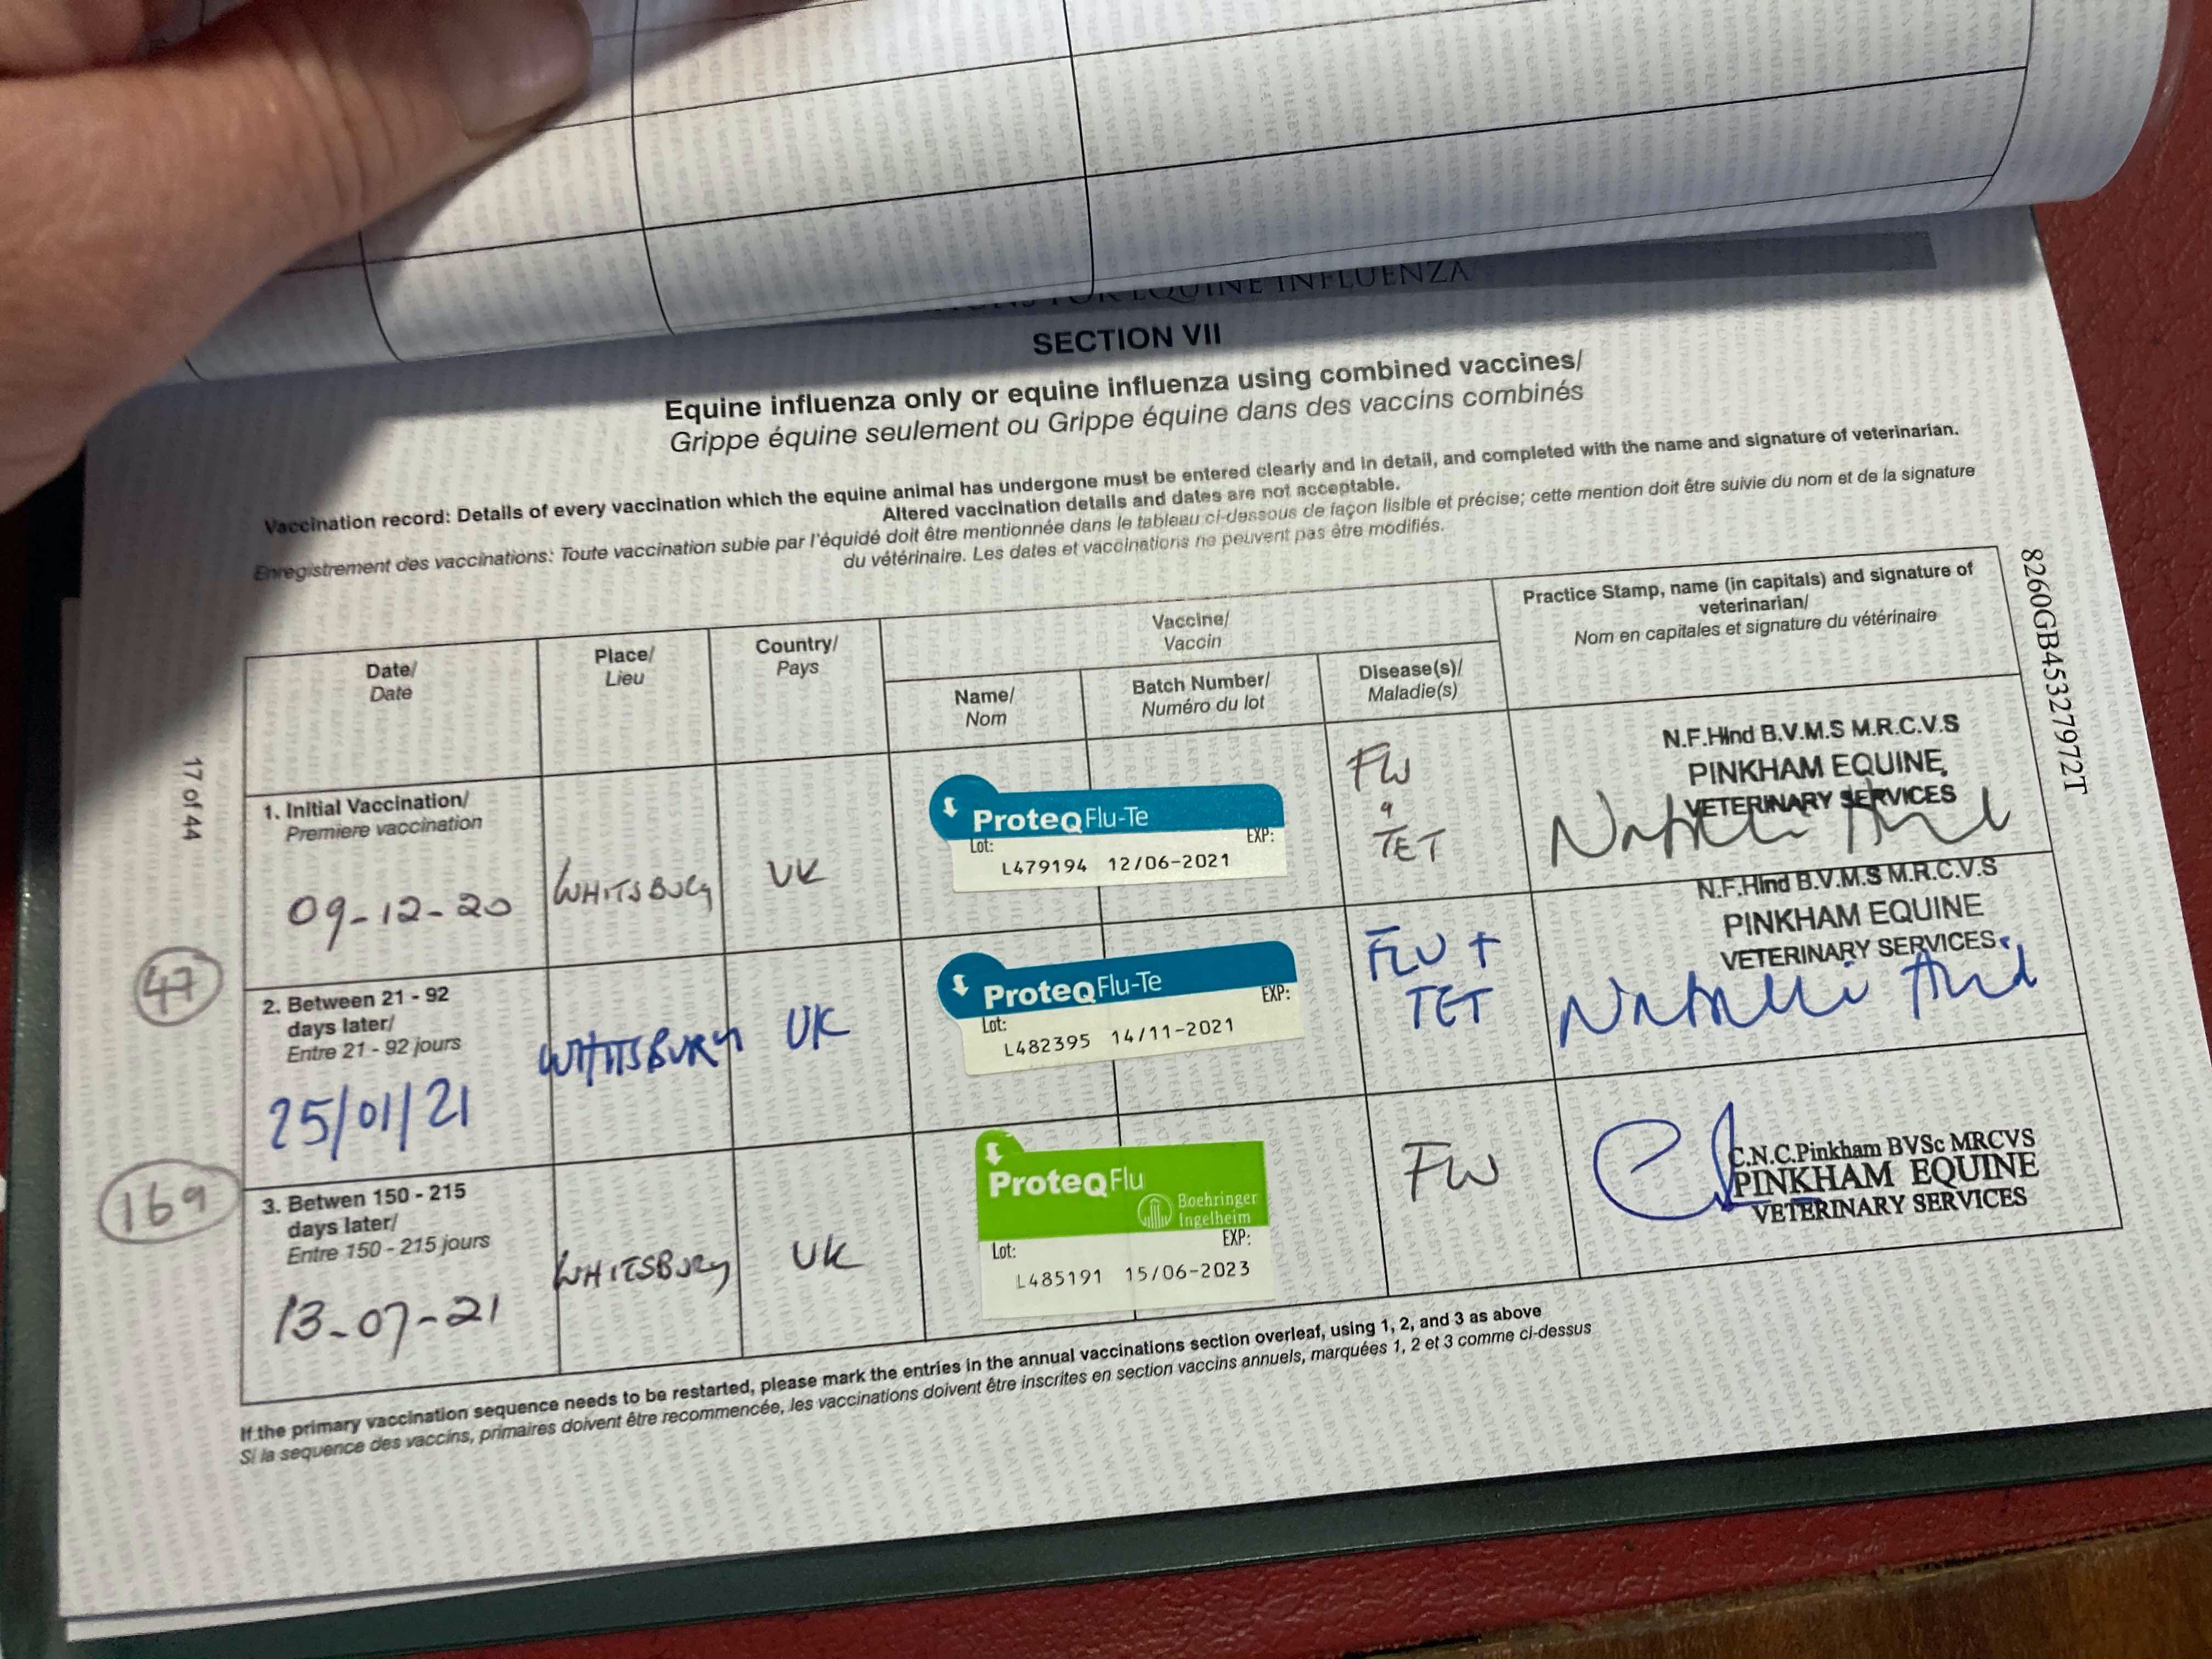 EQUINE INFLUENZA
SECTION VII
Equine influenza only or equine influenza using combined vaccines/
Grippe équine seulement ou Grippe équine dans des vaccins combinés
Vaccination record: Details of every vaccination which the equine animal has undergone must be entered clearly and in detail, and completed with the name and signature of veterinarian.
Altered vaccination details and dates are not acceptable.
Enregistrement des vaccinations: Toute vaccination subie par l'équidé doit être mentionnée dans le tableau ci-dessous de façon lisible et précise; cette mention doit être suivie du nom et de la signature
du vétérinaire. Les dates et vaccinations ne peuvent pas être modifiés.
8260GB45327972T
17 of 44
Date/
Date
Place/
Lieu
Country/
Pays
Vaccine/
Vaccin
Name/
Nom
Batch Number/
Numéro du lot
Disease(s)/
Maladie(s)
Practice Stamp, name (in capitals) and signature of
veterinarian/
Nom en capitales et signature du vétérinaire
1. Initial Vaccination/
Premiere vaccination
09-12-20
WHITSBURY
UK
ProteqFlu-Te
Lot:
EXP:
L479194 12/06-2021
FLU
&
TET
N.F.Hind B.V.M.S M.R.C.V.S
PINKHAM EQUINE
VETERINARY SERVICES
Natalli Hind
47
2. Between 21 - 92
days later/
Entre 21 - 92 jours
25/01/21
WHITSBURY
UK
ProteqFlu-Te
Lot:
EXP:
L482395 14/11-2021
FLU +
TET
N.F.Hind B.V.M.S M.R.C.V.S
PINKHAM EQUINE
VETERINARY SERVICES
Natalli Hind
169
3. Betwen 150 - 215
days later/
Entre 150 - 215 jours
13-07-21
WHITSBURY
UK
ProteqFlu
Boehringer
Ingelheim
Lot:
EXP:
L485191 15/06-2023
FLU
C.N.C.Pinkham BVSc MRCVS
PINKHAM EQUINE
VETERINARY SERVICES
If the primary vaccination sequence needs to be restarted, please mark the entries in the annual vaccinations section overleaf, using 1, 2, and 3 as above
Si la sequence des vaccins, primaires doivent être recommencée, les vaccinations doivent être inscrites en section vaccins annuels, marquées 1, 2 et 3 comme ci-dessus